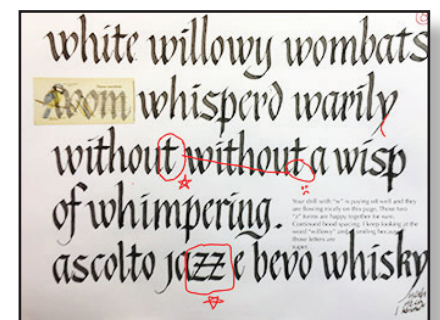 white willowy wombats
room whisperd warily
without without a wisp
of whimpering.
Your drill with "w" is paying off well and they
are flowing nicely on this page. These two
"z" forms are happy together for sure.
Continued good spacing. I keep looking at the
word "willowy" and smiling because
those letters are
super.
ascolto jazz e bevo whisky